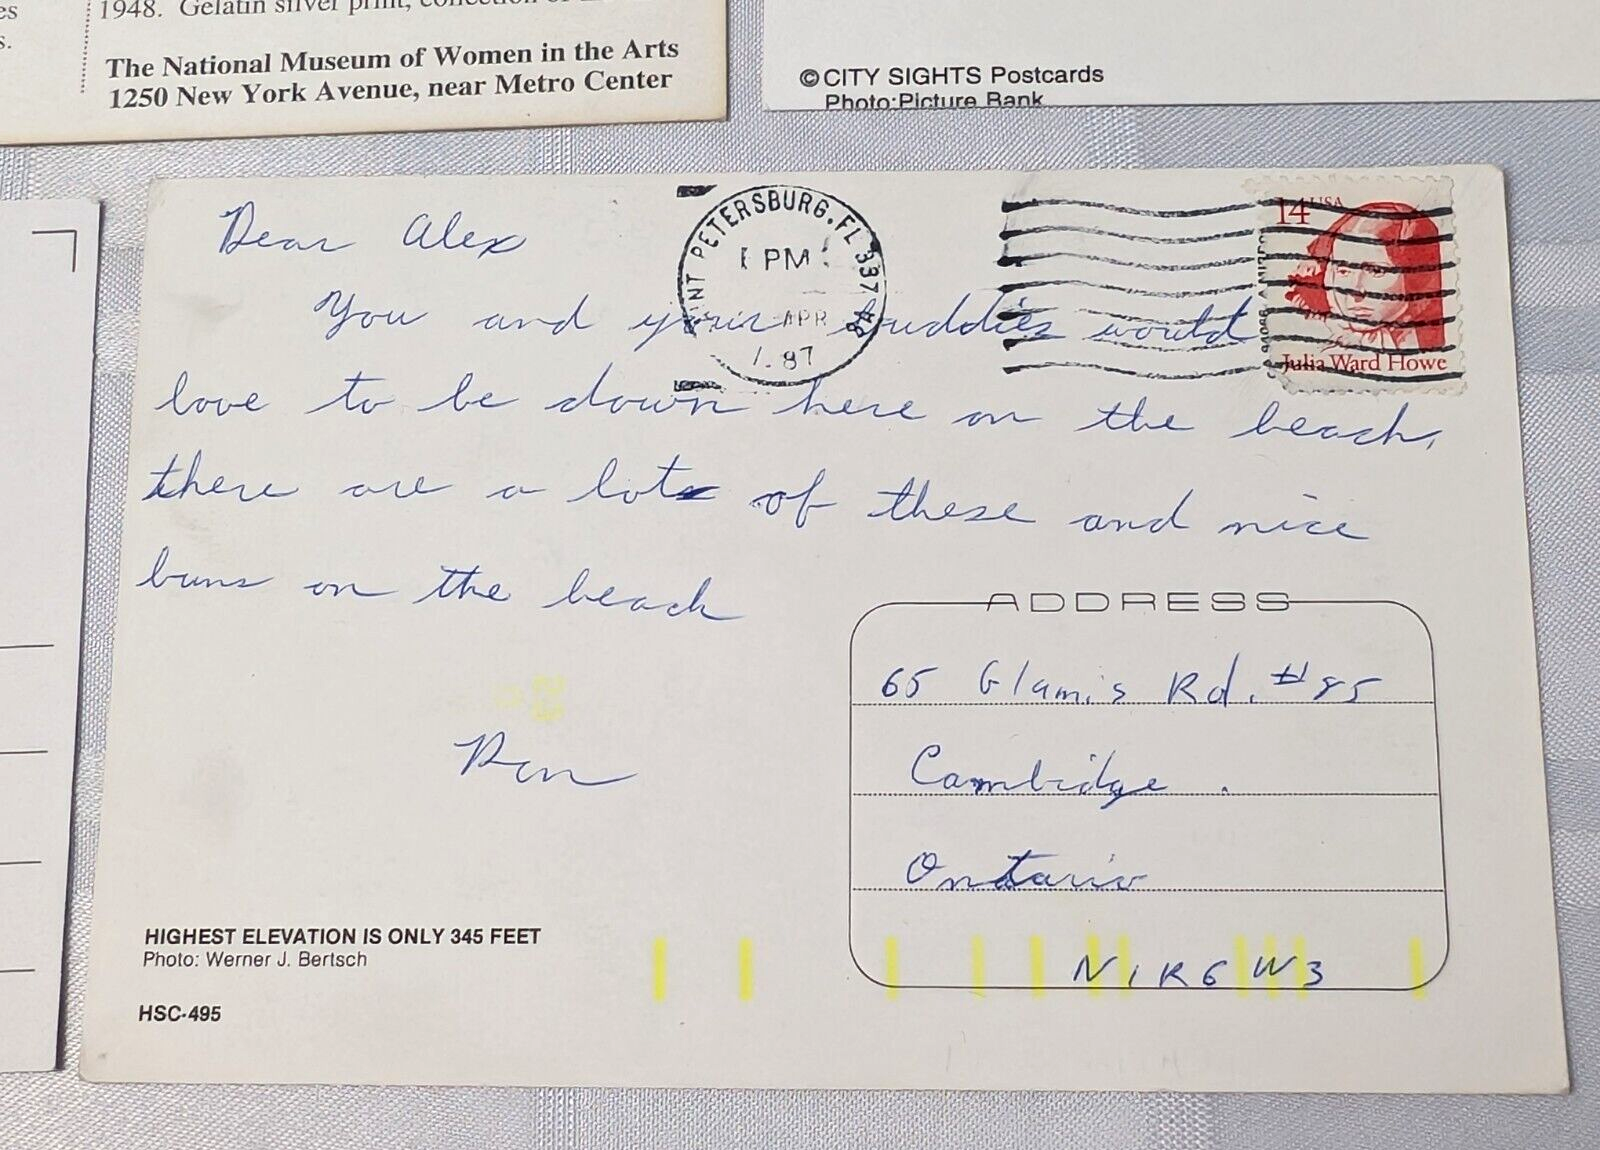 es
s.
1948. Gelatin silver print, collection of
The National Museum of Women in the Arts
1250 New York Avenue, near Metro Center
©CITY SIGHTS Postcards
Photo: Picture Bank
Dear Alex
You and your buddies would
love to be down here on the beach,
there are a lots of these and nice
buns on the beach
Ron
SAINT PETERSBURG, FL 337
PM
APR
87
14 USA
Julia Ward Howe
ADDRESS
65 Glamis Rd. #85
Cambridge.
Ontario
N1R6W3
HIGHEST ELEVATION IS ONLY 345 FEET
Photo: Werner J. Bertsch
HSC-495